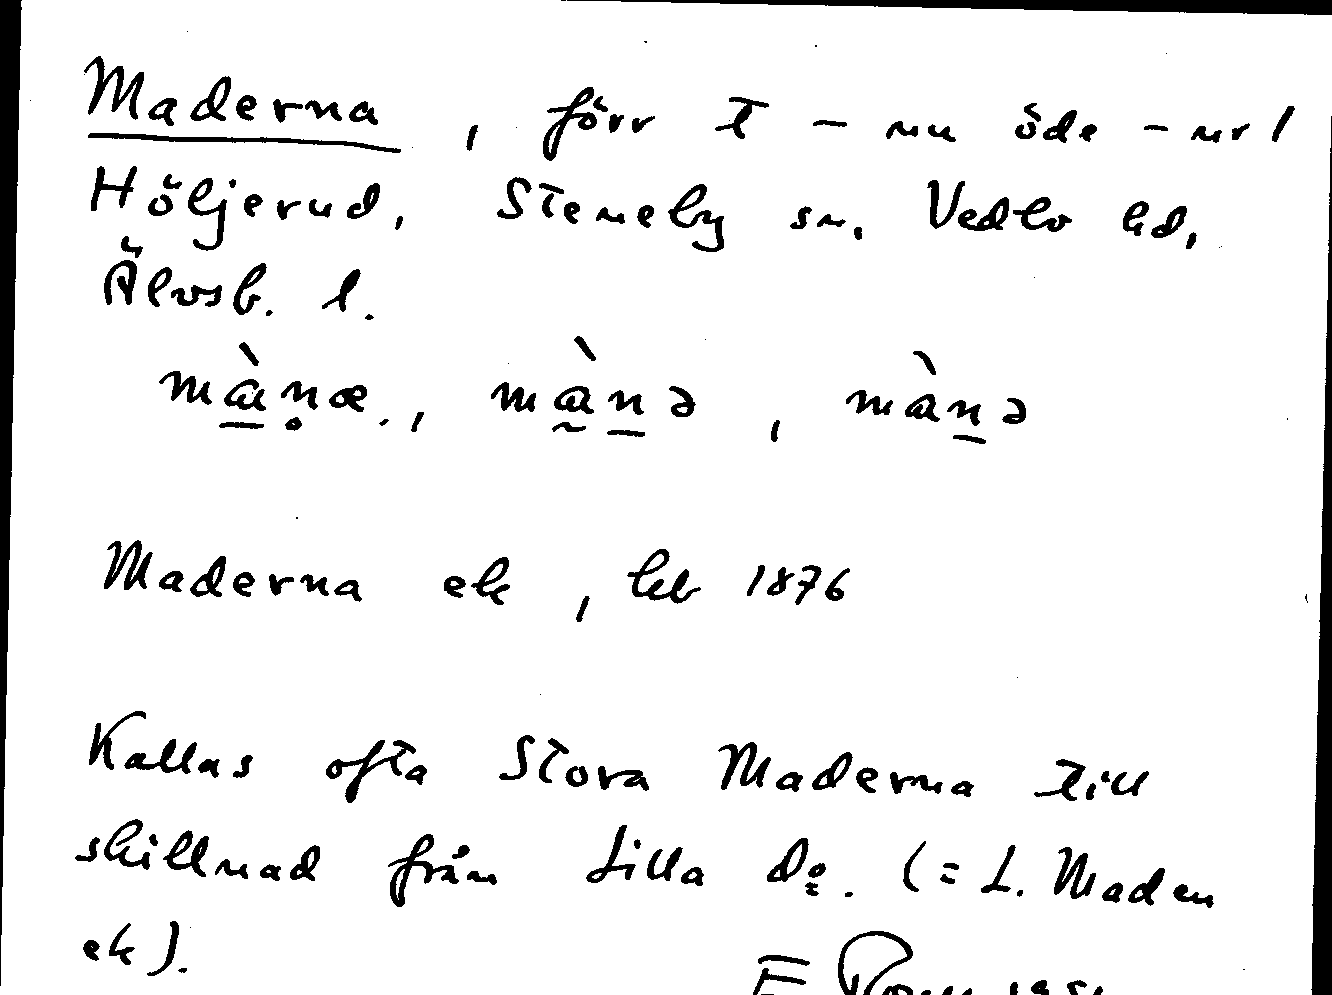 Maderna, förr t – nu öde – ur /
Höljerud, Steneby sn. Vedbo hd,
Älvsb. l.
mànæ., mànə, mànə
Maderna ek, heb 1876
Kallas ofta Stora Maderna till
skillnad från Lilla do. (= L. Maden
ek).
E